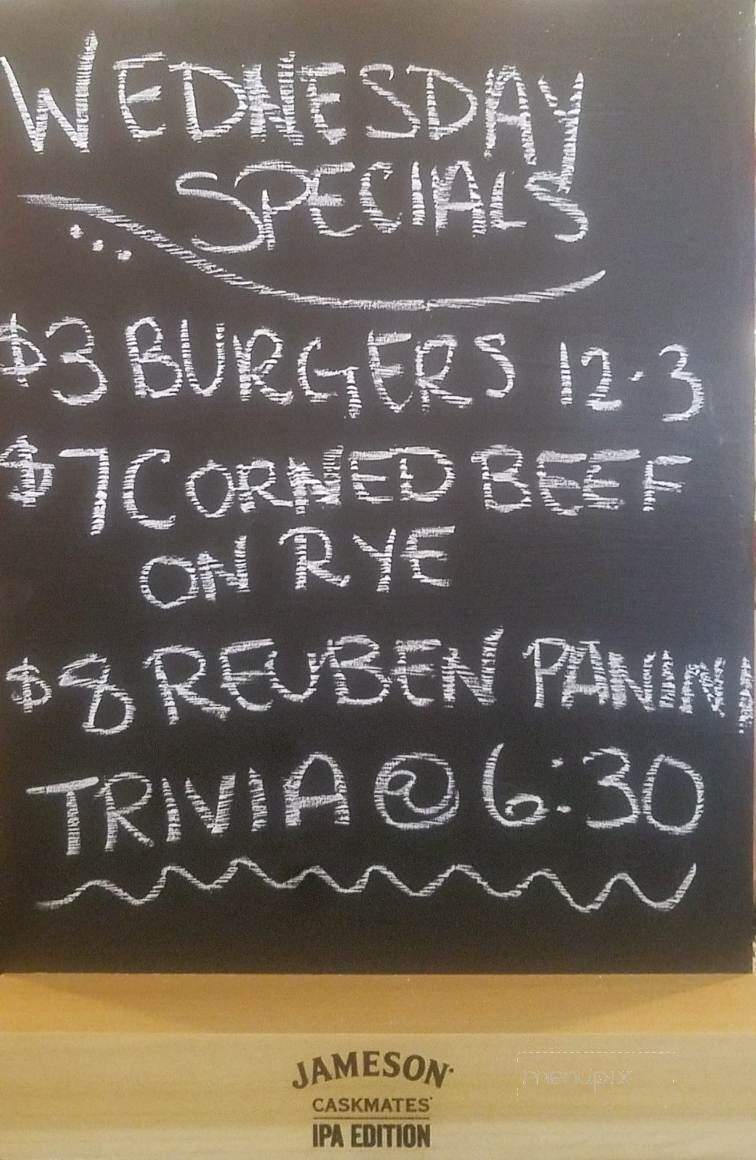 WEDNESDAY
SPECIALS
$3 BURGERS 12-3
$7 CORNED BEEF
ON RYE
$8 REUBEN PANINI
TRIVIA @ 6:30
JAMESON
CASKMATES
IPA EDITION
menupix